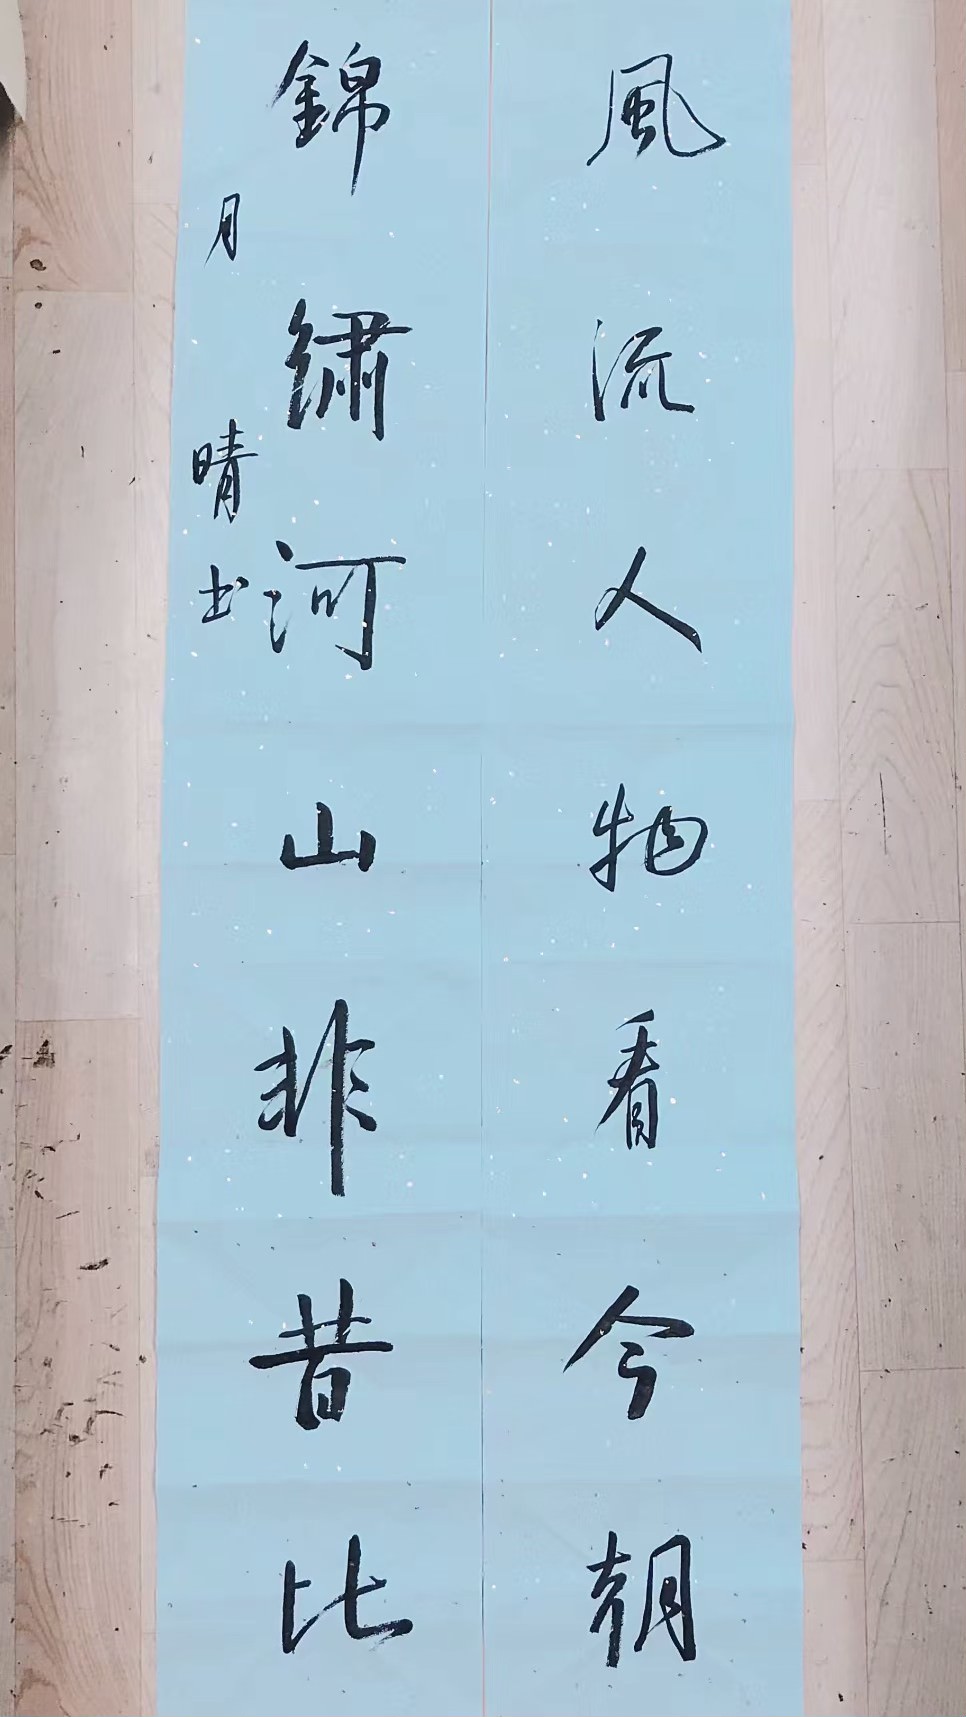 風流人物看今朝
錦繡河山非昔比
月晴书